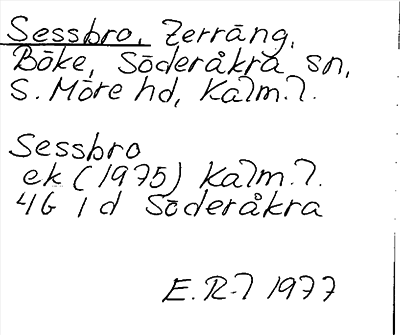 Sessbro, Terräng,
Böke, Söderåkra sn,
S. Möre hd, Kalm. l.
Sessbro
ek (1975) Kalm. l.
4G 1 d Söderåkra
E. R-l 1977